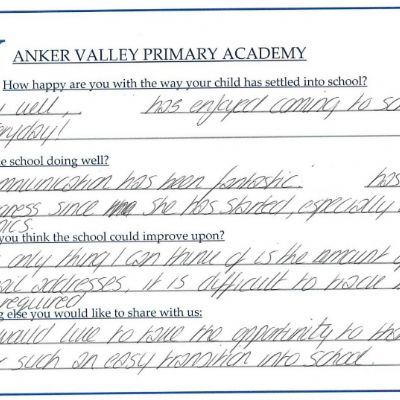 ANKER VALLEY PRIMARY ACADEMY
How happy are you with the way your child has settled into school?
well, has enjoyed coming to
everyday!
e school doing well?
mmunication has been fantastic. has
ress since she has started, especially
ics.
you think the school could improve upon?
only thing I can think of is the amount of
addresses, it is difficult to
required
g else you would like to share with us:
would like to take the opportunity to
such an easy transition into school.